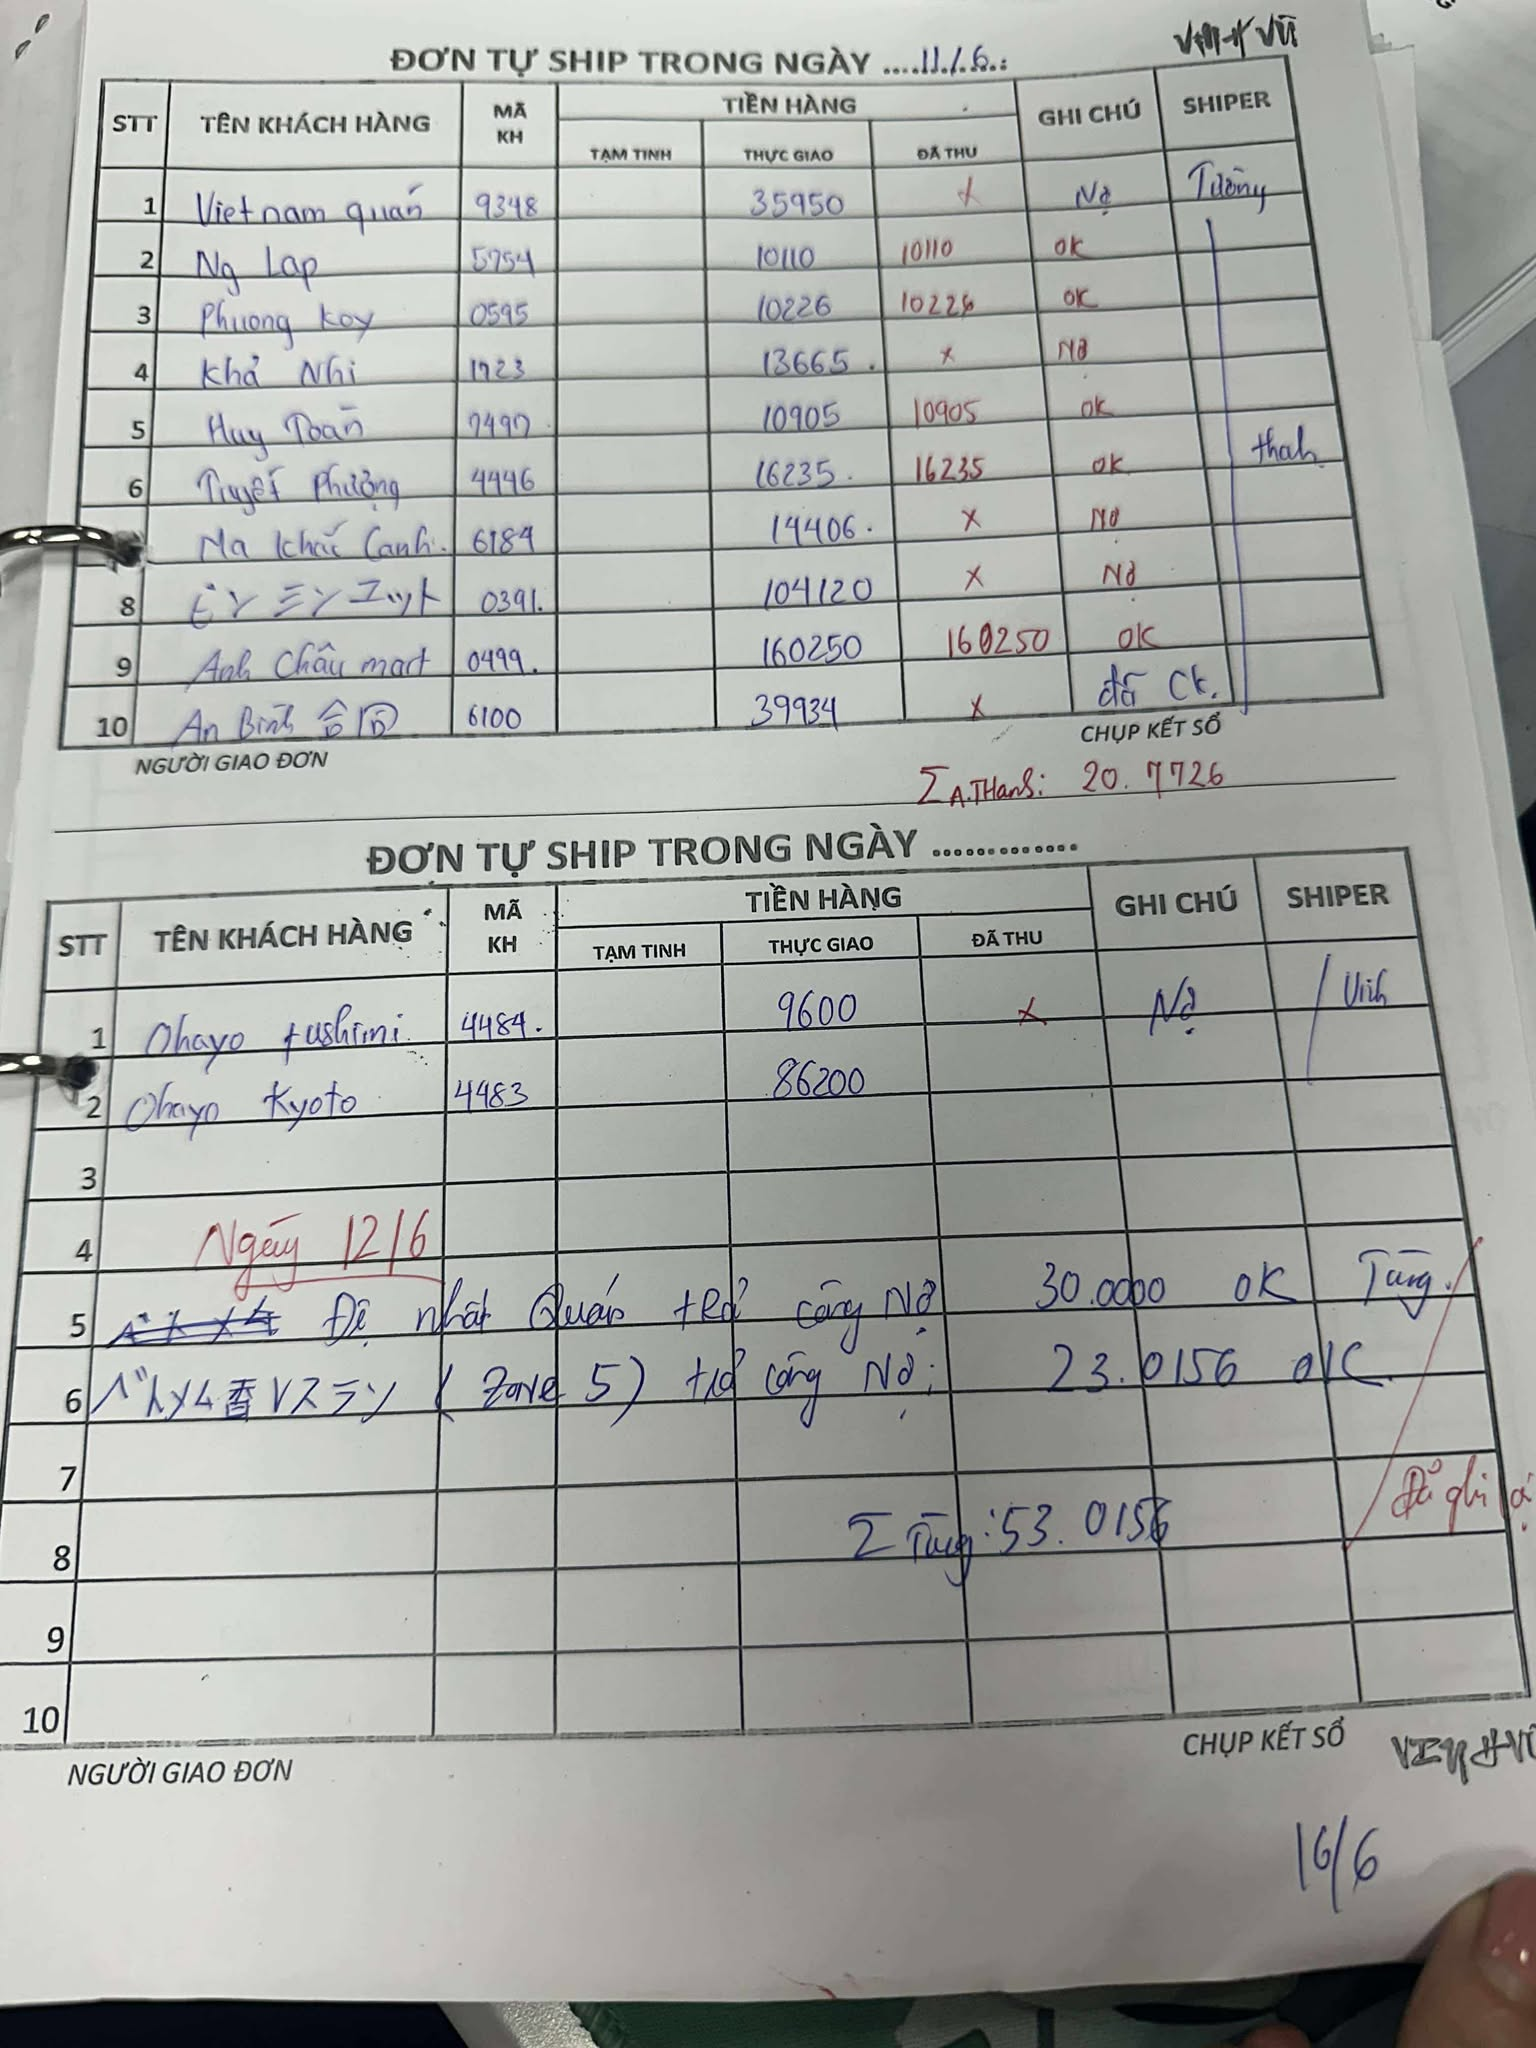 VINH VŨ
ĐƠN TỰ SHIP TRONG NGÀY ....11./.6..
STT TÊN KHÁCH HÀNG MÃ KH TIỀN HÀNG GHI CHÚ SHIPER
TẠM TINH THỰC GIAO ĐÃ THU
1 Vietnam quán 9348 35950 x Nợ Tường
2 Ng Lap 5754 10110 10110 OK
3 Phuong Koy 0595 10226 10226 OK
4 Khả Nhi 1723 13665. x Nợ
5 Huy Toàn 7497 10905 10905 OK
6 Tuyết Phượng 4446 16235. 16235 OK thanh
Ma Khắc Cảnh. 6184 14406. x Nợ
8 ビンミンエット 0391. 104120 x Nợ
9 Anh Châu mart 0499. 160250 160250 OK
10 An Binh 6100 39934 x đã CK.
NGƯỜI GIAO ĐƠN CHỤP KẾT SỔ
Σ A.THanh: 20.7726
ĐƠN TỰ SHIP TRONG NGÀY .............
STT TÊN KHÁCH HÀNG MÃ KH TIỀN HÀNG GHI CHÚ SHIPER
TẠM TINH THỰC GIAO ĐÃ THU
1 Ohayo fushimi. 4484. 9600 x Nợ Vinh
2 Ohayo Kyoto 4483 86200
3
4 Ngày 12/6
5 Đệ nhất Quán trả công Nợ 30.0000 OK Tùng.
6 (Zone 5) trả công Nợ: 23.0156 OK
7
8 Σ Tùng: 53.0156 Đã ghi
9
10
NGƯỜI GIAO ĐƠN CHỤP KẾT SỔ VINH VŨ
16/6